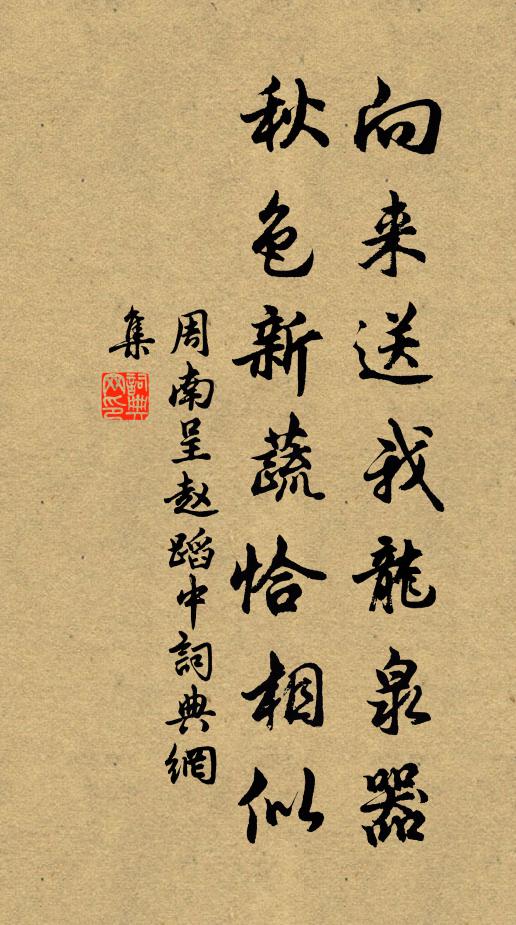 向来送我龍泉器
秋色新蔬恰相似
周南呈赵蹈中詞典網
集
詞典網印